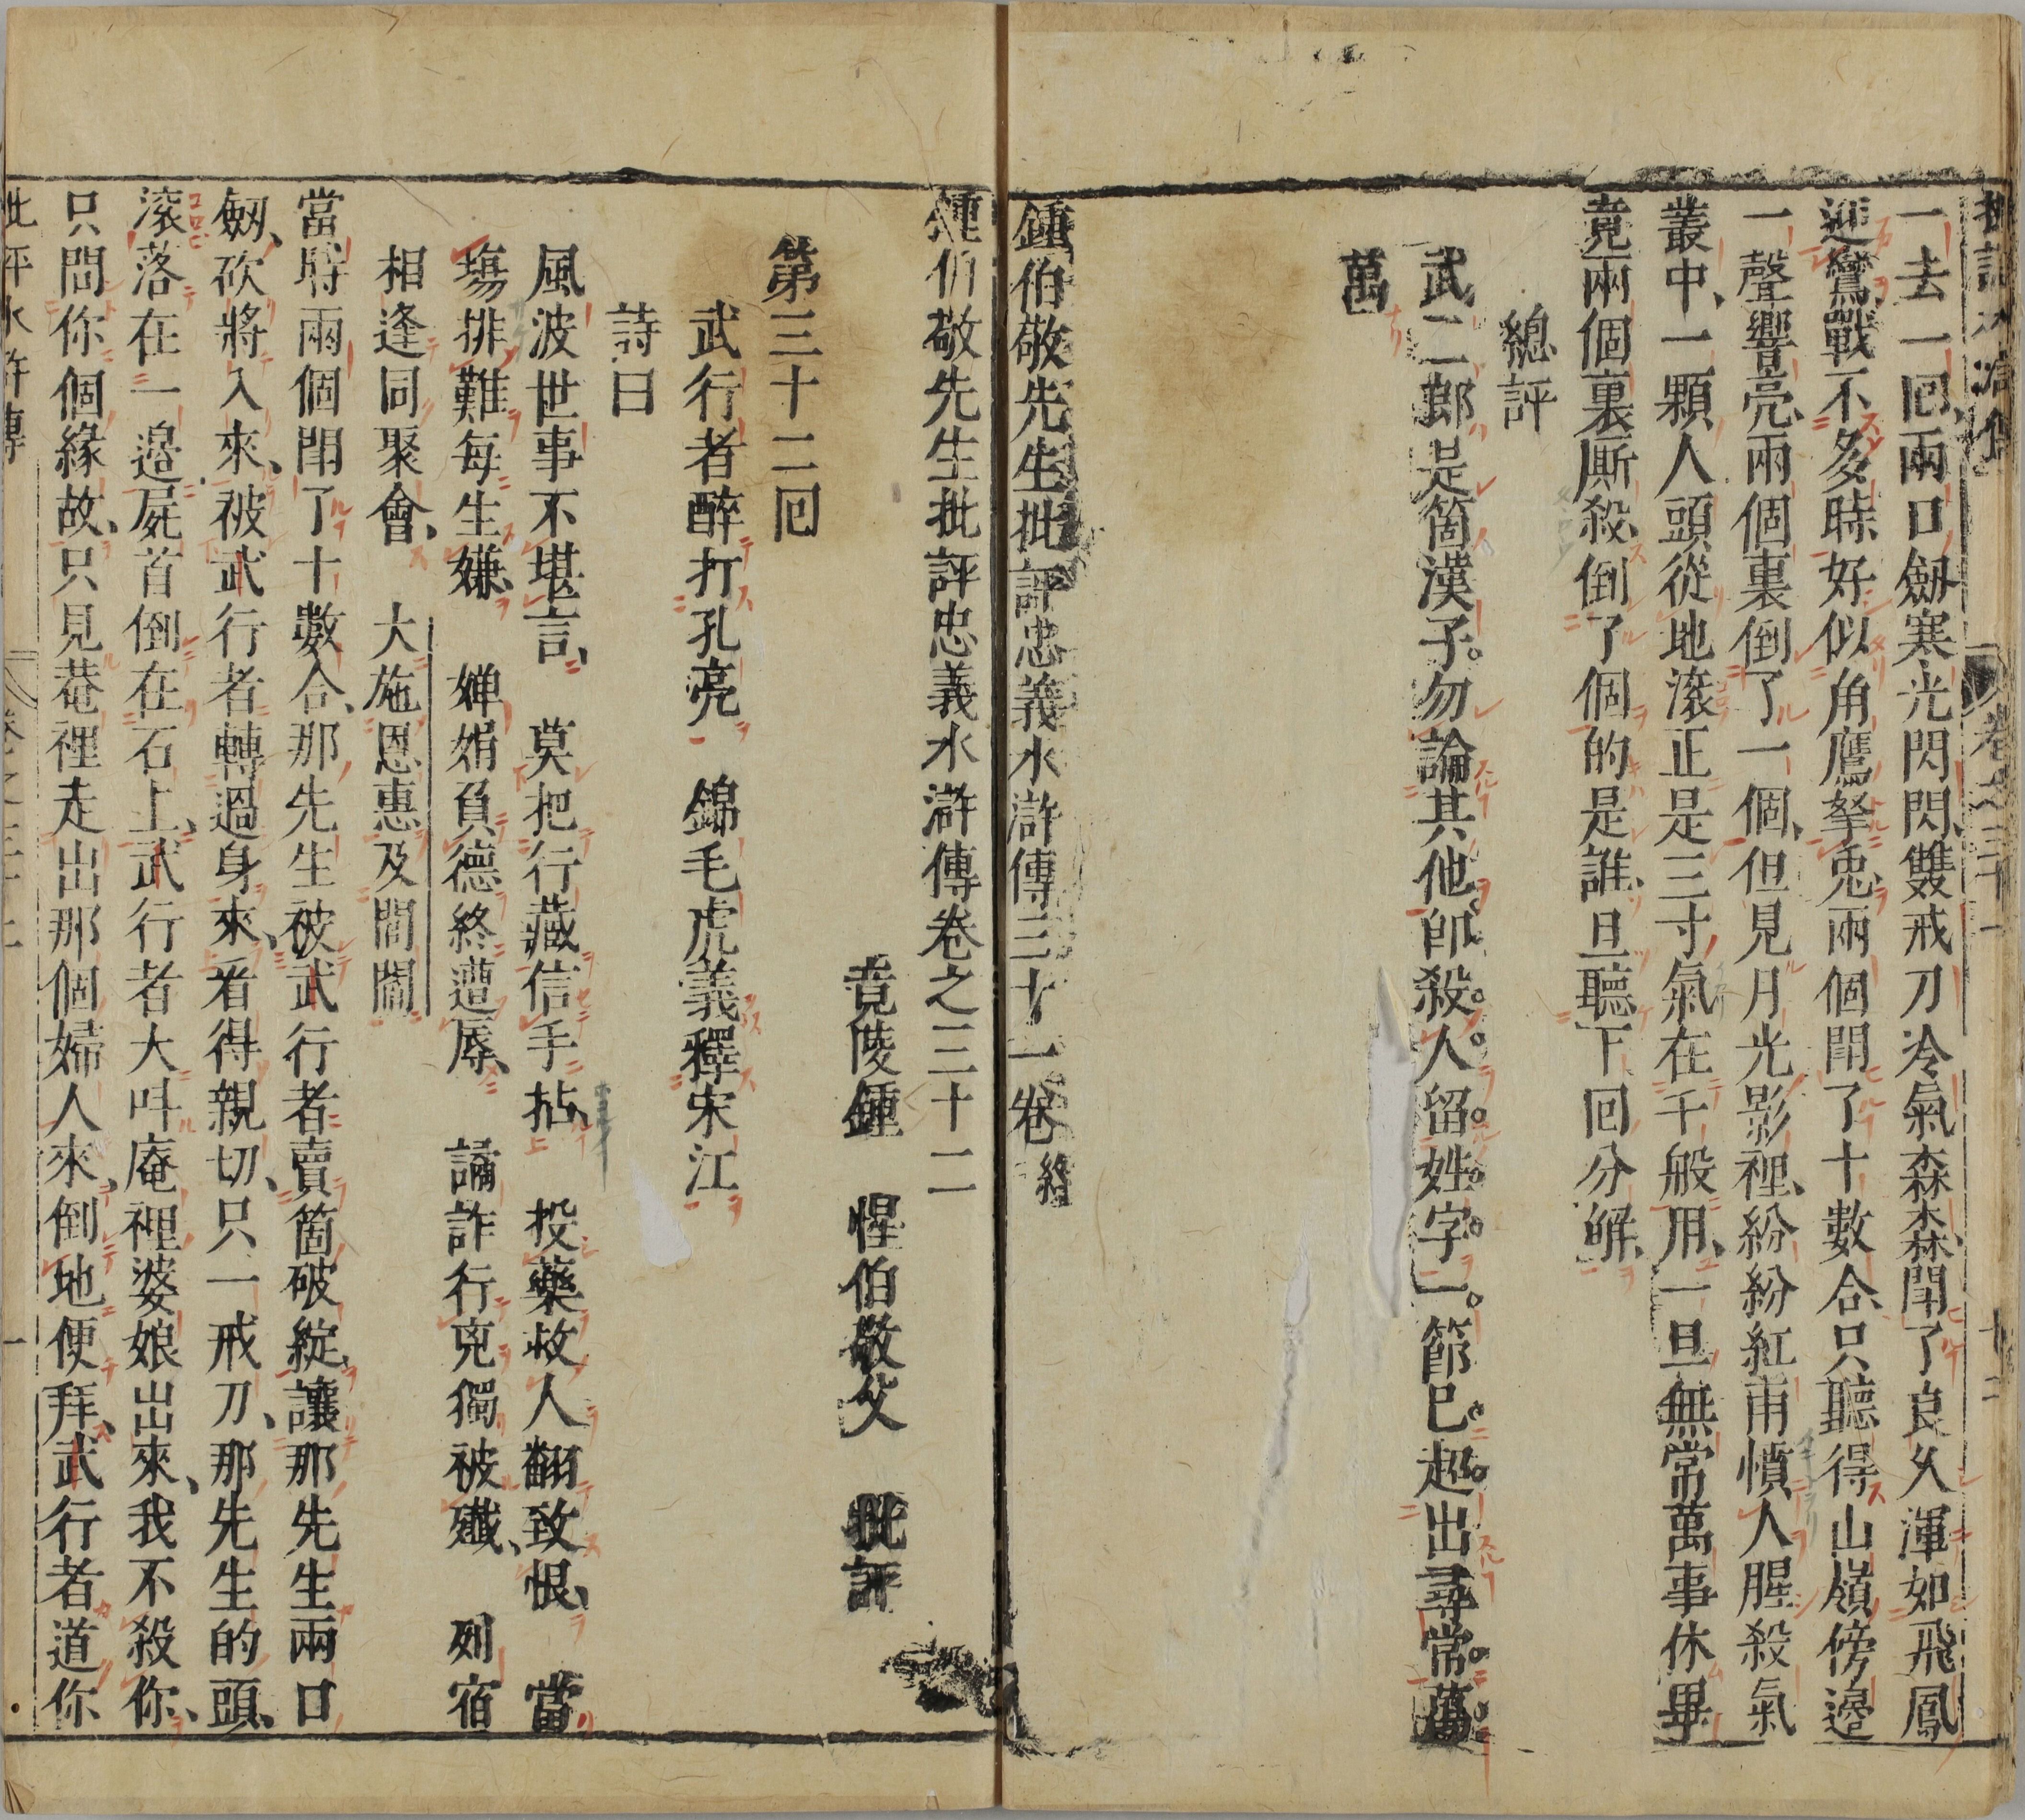 批評水滸傳 卷之三十一 廿三
一去一回、兩口劔寒光閃閃、雙戒刀冷氣森森、鬪了良久、渾如飛鳳
迎鸞、戰不多時、好似角鷹拏兎、兩個鬪了十數合、只聽得山嶺傍邉
一聲響亮、兩個裏倒了一個、但見月光影裡、紛紛紅雨噴人腥、殺氣
叢中、一顆人頭從地滚、正是三寸氣在千般用、一旦無常萬事休、畢
竟兩個裏厮殺倒了個的是誰、且聽下回分解、
總評
武二郎是箇漢子。勿論其他。卽殺人留姓字一節。已超出尋常萬
萬
鍾伯敬先生批評忠義水滸傳三十一卷終
鍾伯敬先生批評忠義水滸傳卷之三十二
竟陵鍾 惺伯敬父 批評
第三十二回
武行者醉打孔亮 錦毛虎義釋宋江
詩曰
風波世事不堪言、 莫把行藏信手拈、 投藥救人翻致恨、 當
塲排難每生嫌、 嬋娟負德終遭辱、 譎詐行兇獨被殲、 列宿
相逢同聚會、 大施恩惠及閭閻
當時兩個鬪了十數合、那先生被武行者賣箇破綻、讓那先生兩口
劔砍將入來、被武行者轉過身來、看得親切、只一戒刀、那先生的頭、
滚落在一邉、屍首倒在石上、武行者大呌、庵裡婆娘出來、我不殺你、
只問你個緣故、只見菴裡走出那個婦人來、倒地便拜、武行者道、你
批評水滸傳 卷之三十二 一